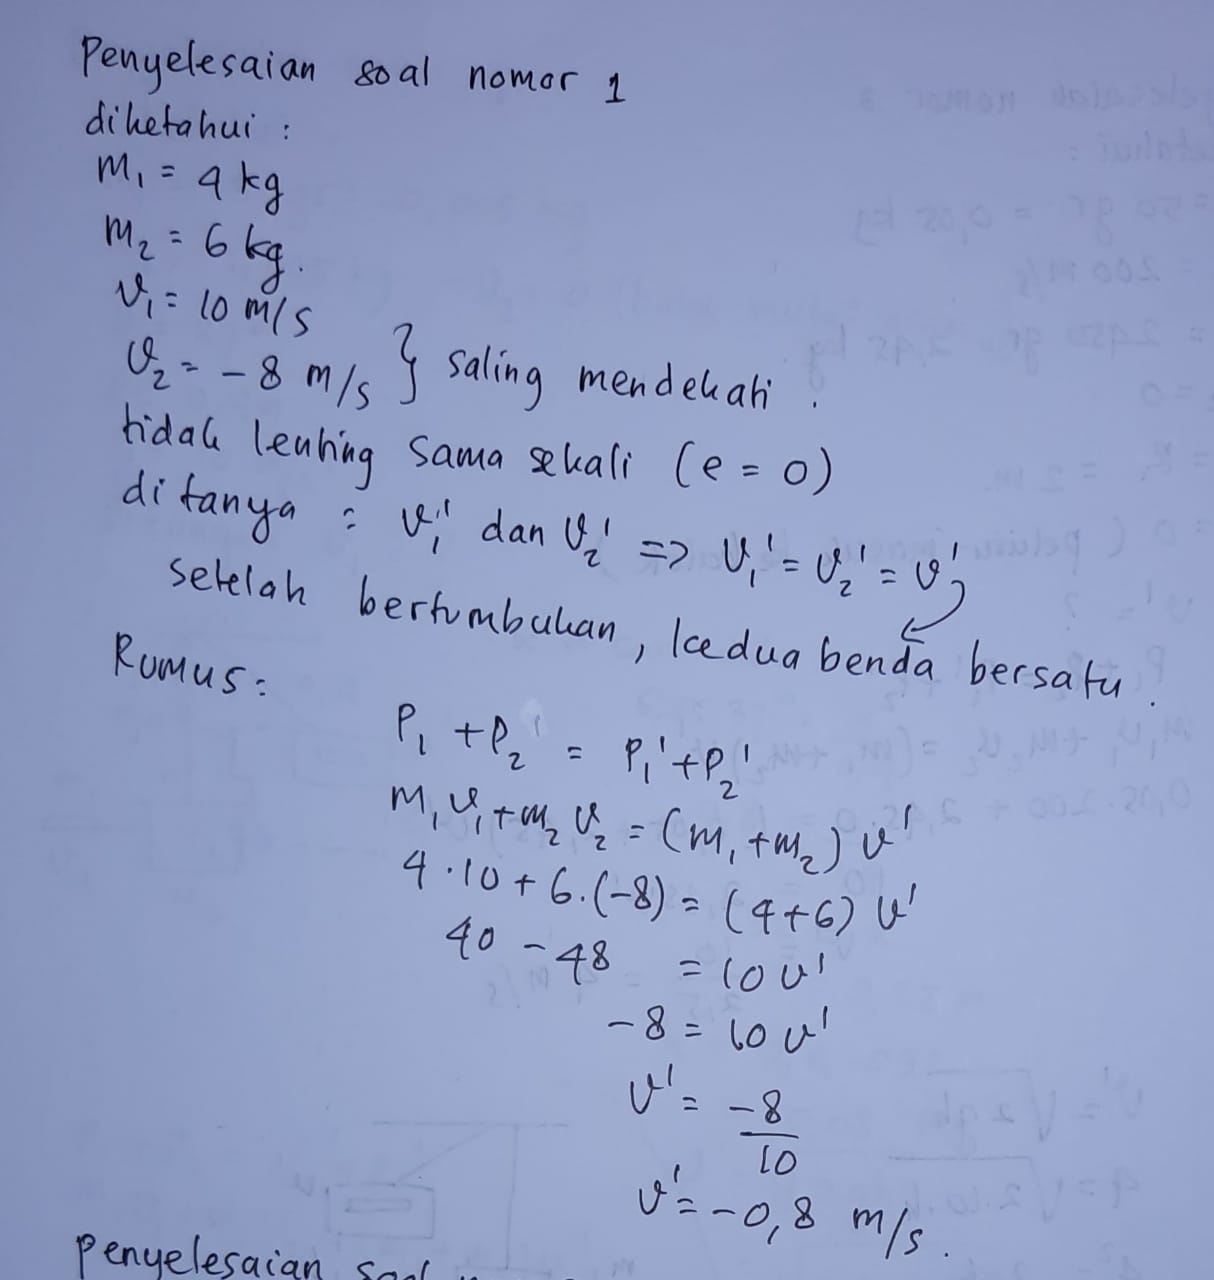 Penyelesaian soal nomor 1
diketahui :
m₁ = 4 kg
m₂ = 6 kg.
v₁ = 10 m/s
v₂ = -8 m/s } saling mendekati.
tidak lenting sama sekali (e = 0)
ditanya : v₁' dan v₂' => v₁' = v₂' = v'
setelah bertumbukan, kedua benda bersatu.
Rumus :
P₁ + P₂ = P₁' + P₂'
m₁v₁ + m₂v₂ = (m₁ + m₂) v'
4 . 10 + 6 . (-8) = (4+6) v'
40 - 48 = 10 v'
-8 = 10 v'
v' = -8/10
v' = -0,8 m/s.
Penyelesaian soal